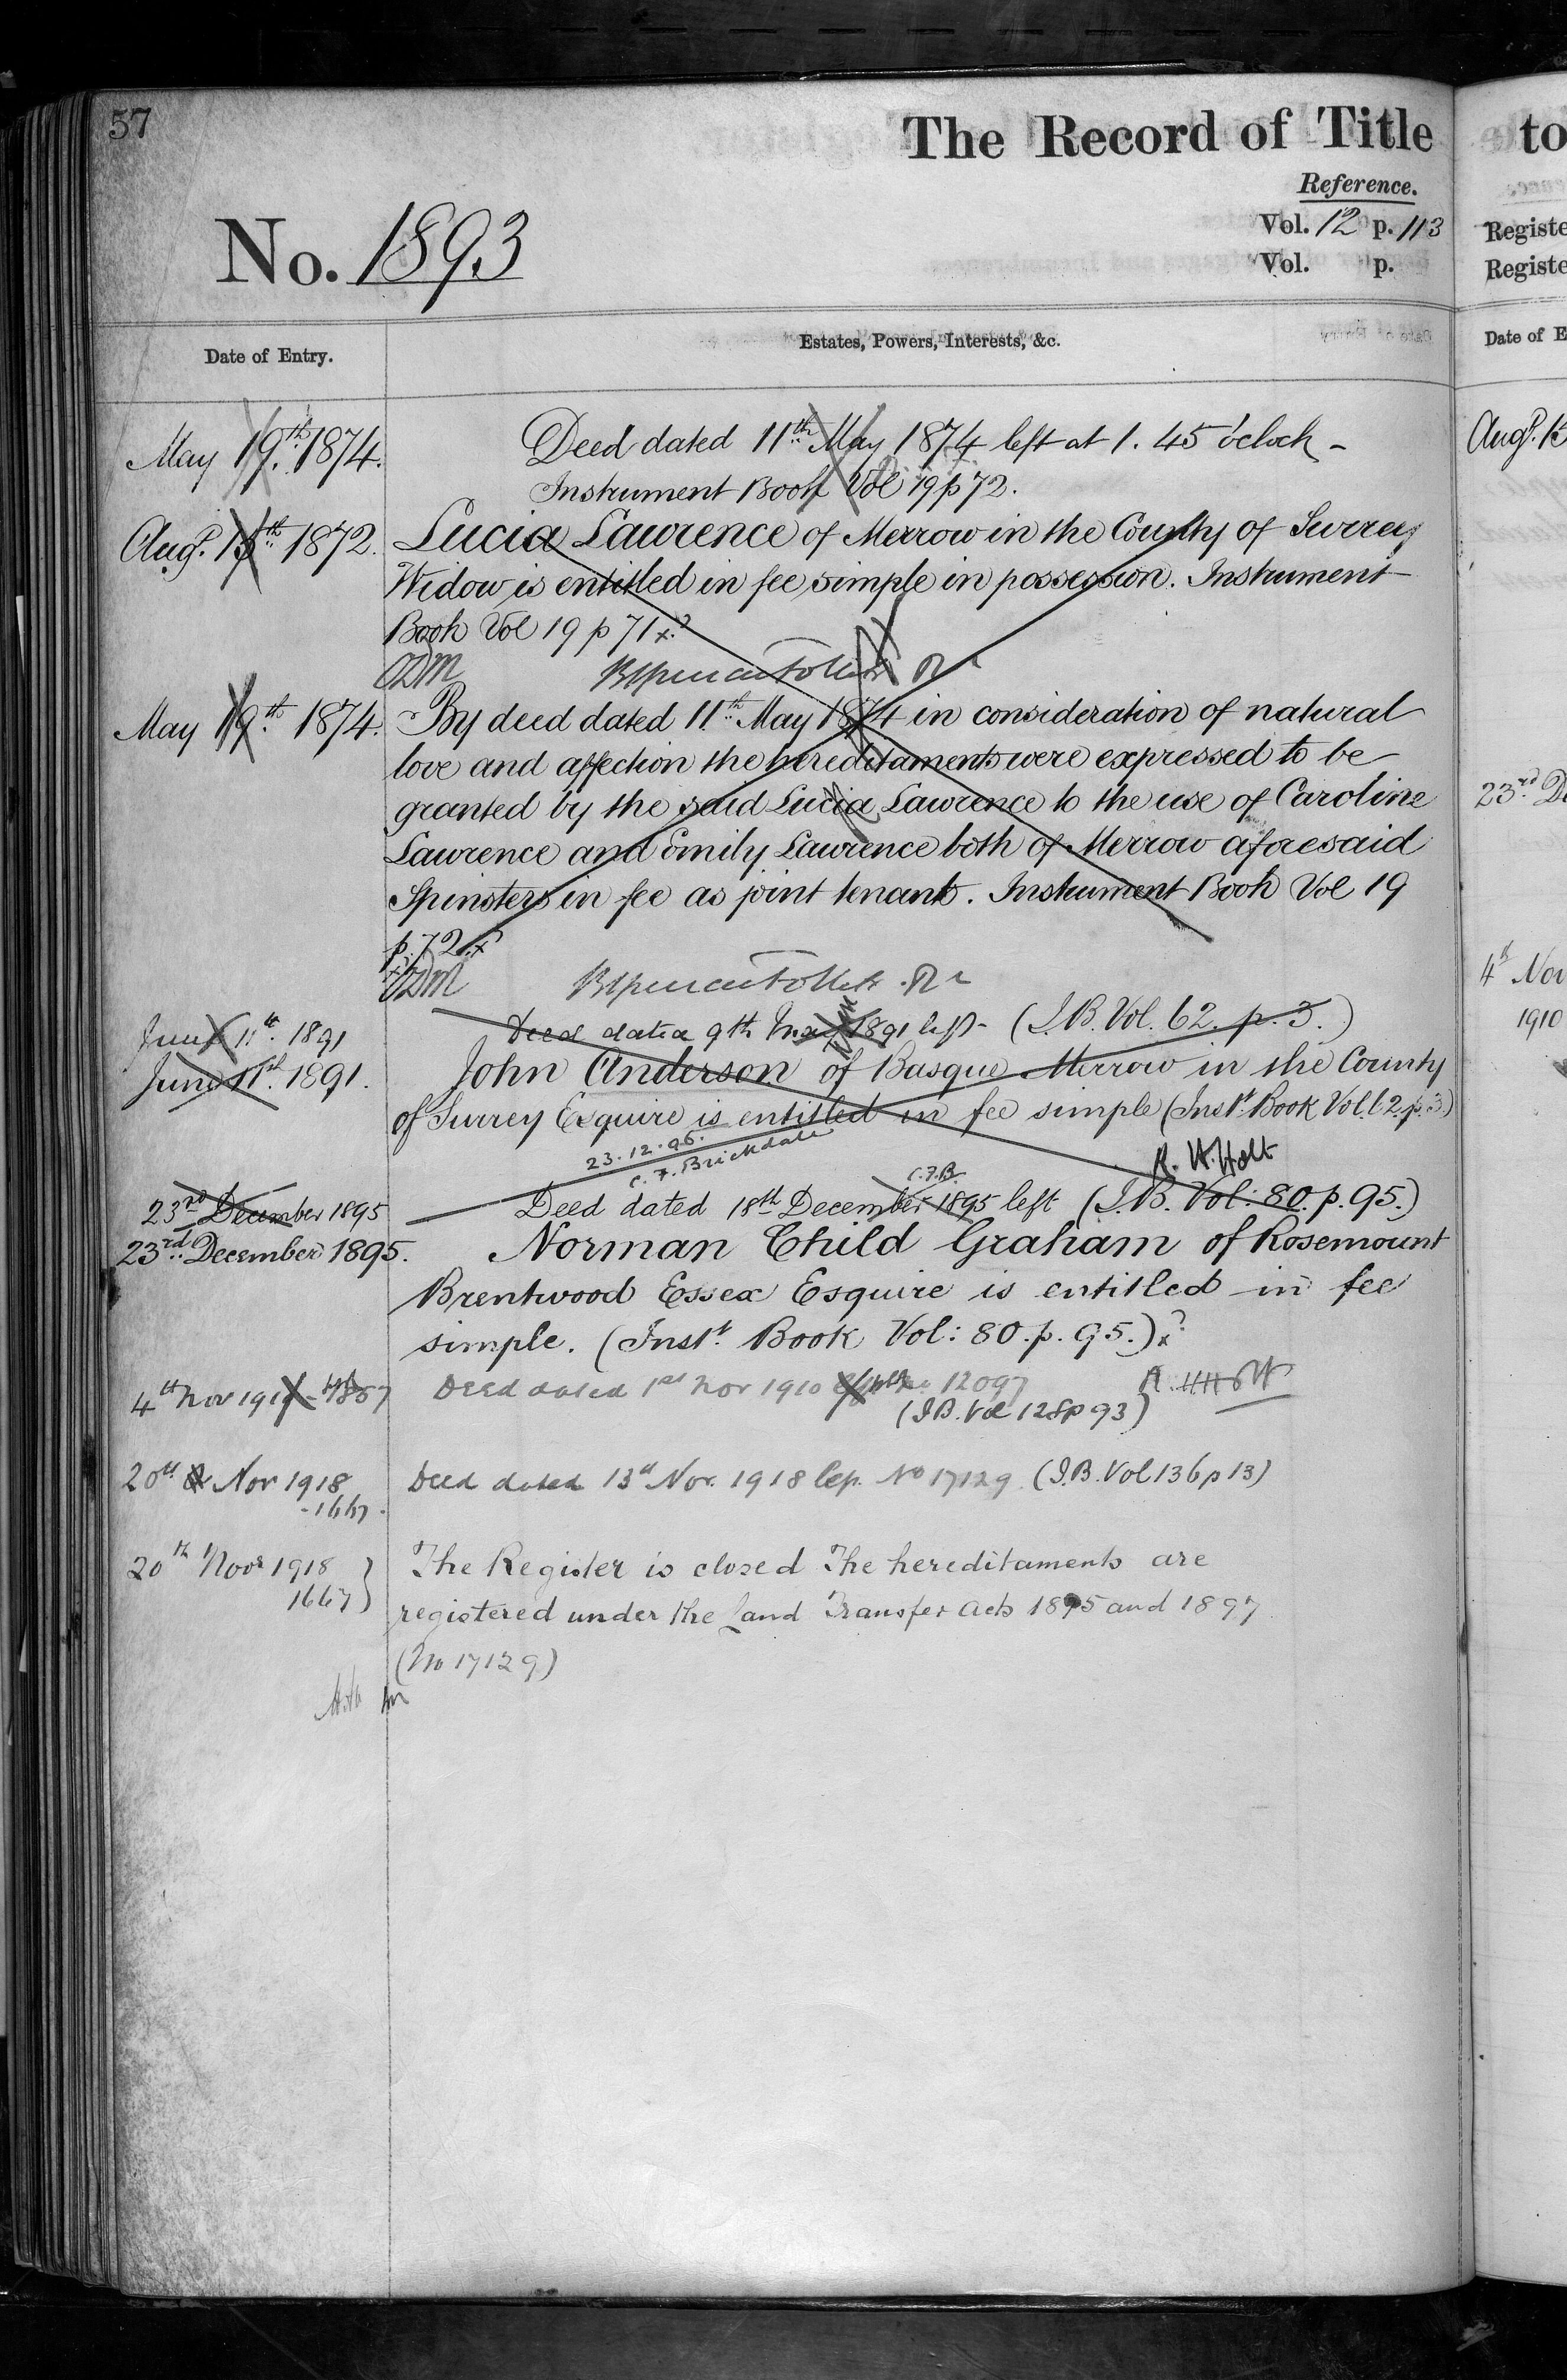 57
The Record of Title
Reference.
No. 1893
Vol. 12 p. 113
Vol. p.
Date of Entry.
Estates, Powers, Interests, &c.
May 19th 1874. Deed dated 11th May 1874 left at 1. 45 o'clock -
Instrument Book Vol 19 p 72.
Augt. 15th 1872. Lucia Lawrence of Merrow in the County of Surrey
Widow is entitled in fee simple in possession. Instrument
Book Vol 19 p 71 x
ODM
May 19th 1874. By deed dated 11th May 1874 in consideration of natural
love and affection the hereditaments were expressed to be
granted by the said Lucia Lawrence to the use of Caroline
Lawrence and Emily Lawrence both of Merrow aforesaid
Spinsters in fee as joint tenants. Instrument Book Vol 19
p. 72. x
ODM
June 11th. 1891 Deed dated 9th 1891 left - (I.B. Vol. 62. p. 3.)
June 11th. 1891. John Anderson of Basque Merrow in the County
of Surrey Esquire is entitled in fee simple (Inst. Book Vol. 62. p. 3.)
23.12.95.
C. F. Brickdale
R. H. Holt
C.F.B.
23rd December 1895 Deed dated 18th December 1895 left (I.B. Vol: 80. p. 95.)
23rd December 1895. Norman Child Graham of Rosemount
Brentwood Essex Esquire is entitled in fee
simple. (Inst. Book Vol: 80. p. 95.) x
4th Nov 1910 Deed dated 1st Nov 1910 12097
(I.B. Vol 128 p 93)
20th Nov 1918 Deed dated 13th Nov. 1918 No 17129 (I.B. Vol 136 p 13)
- 1667 -
20th Novr 1918 The Register is closed The hereditaments are
1667 registered under the Land Transfer Acts 1875 and 1897
(No 17129)
to
Registe
Registe
Date of E
Augt. 15
23rd De
4th Nov
1910